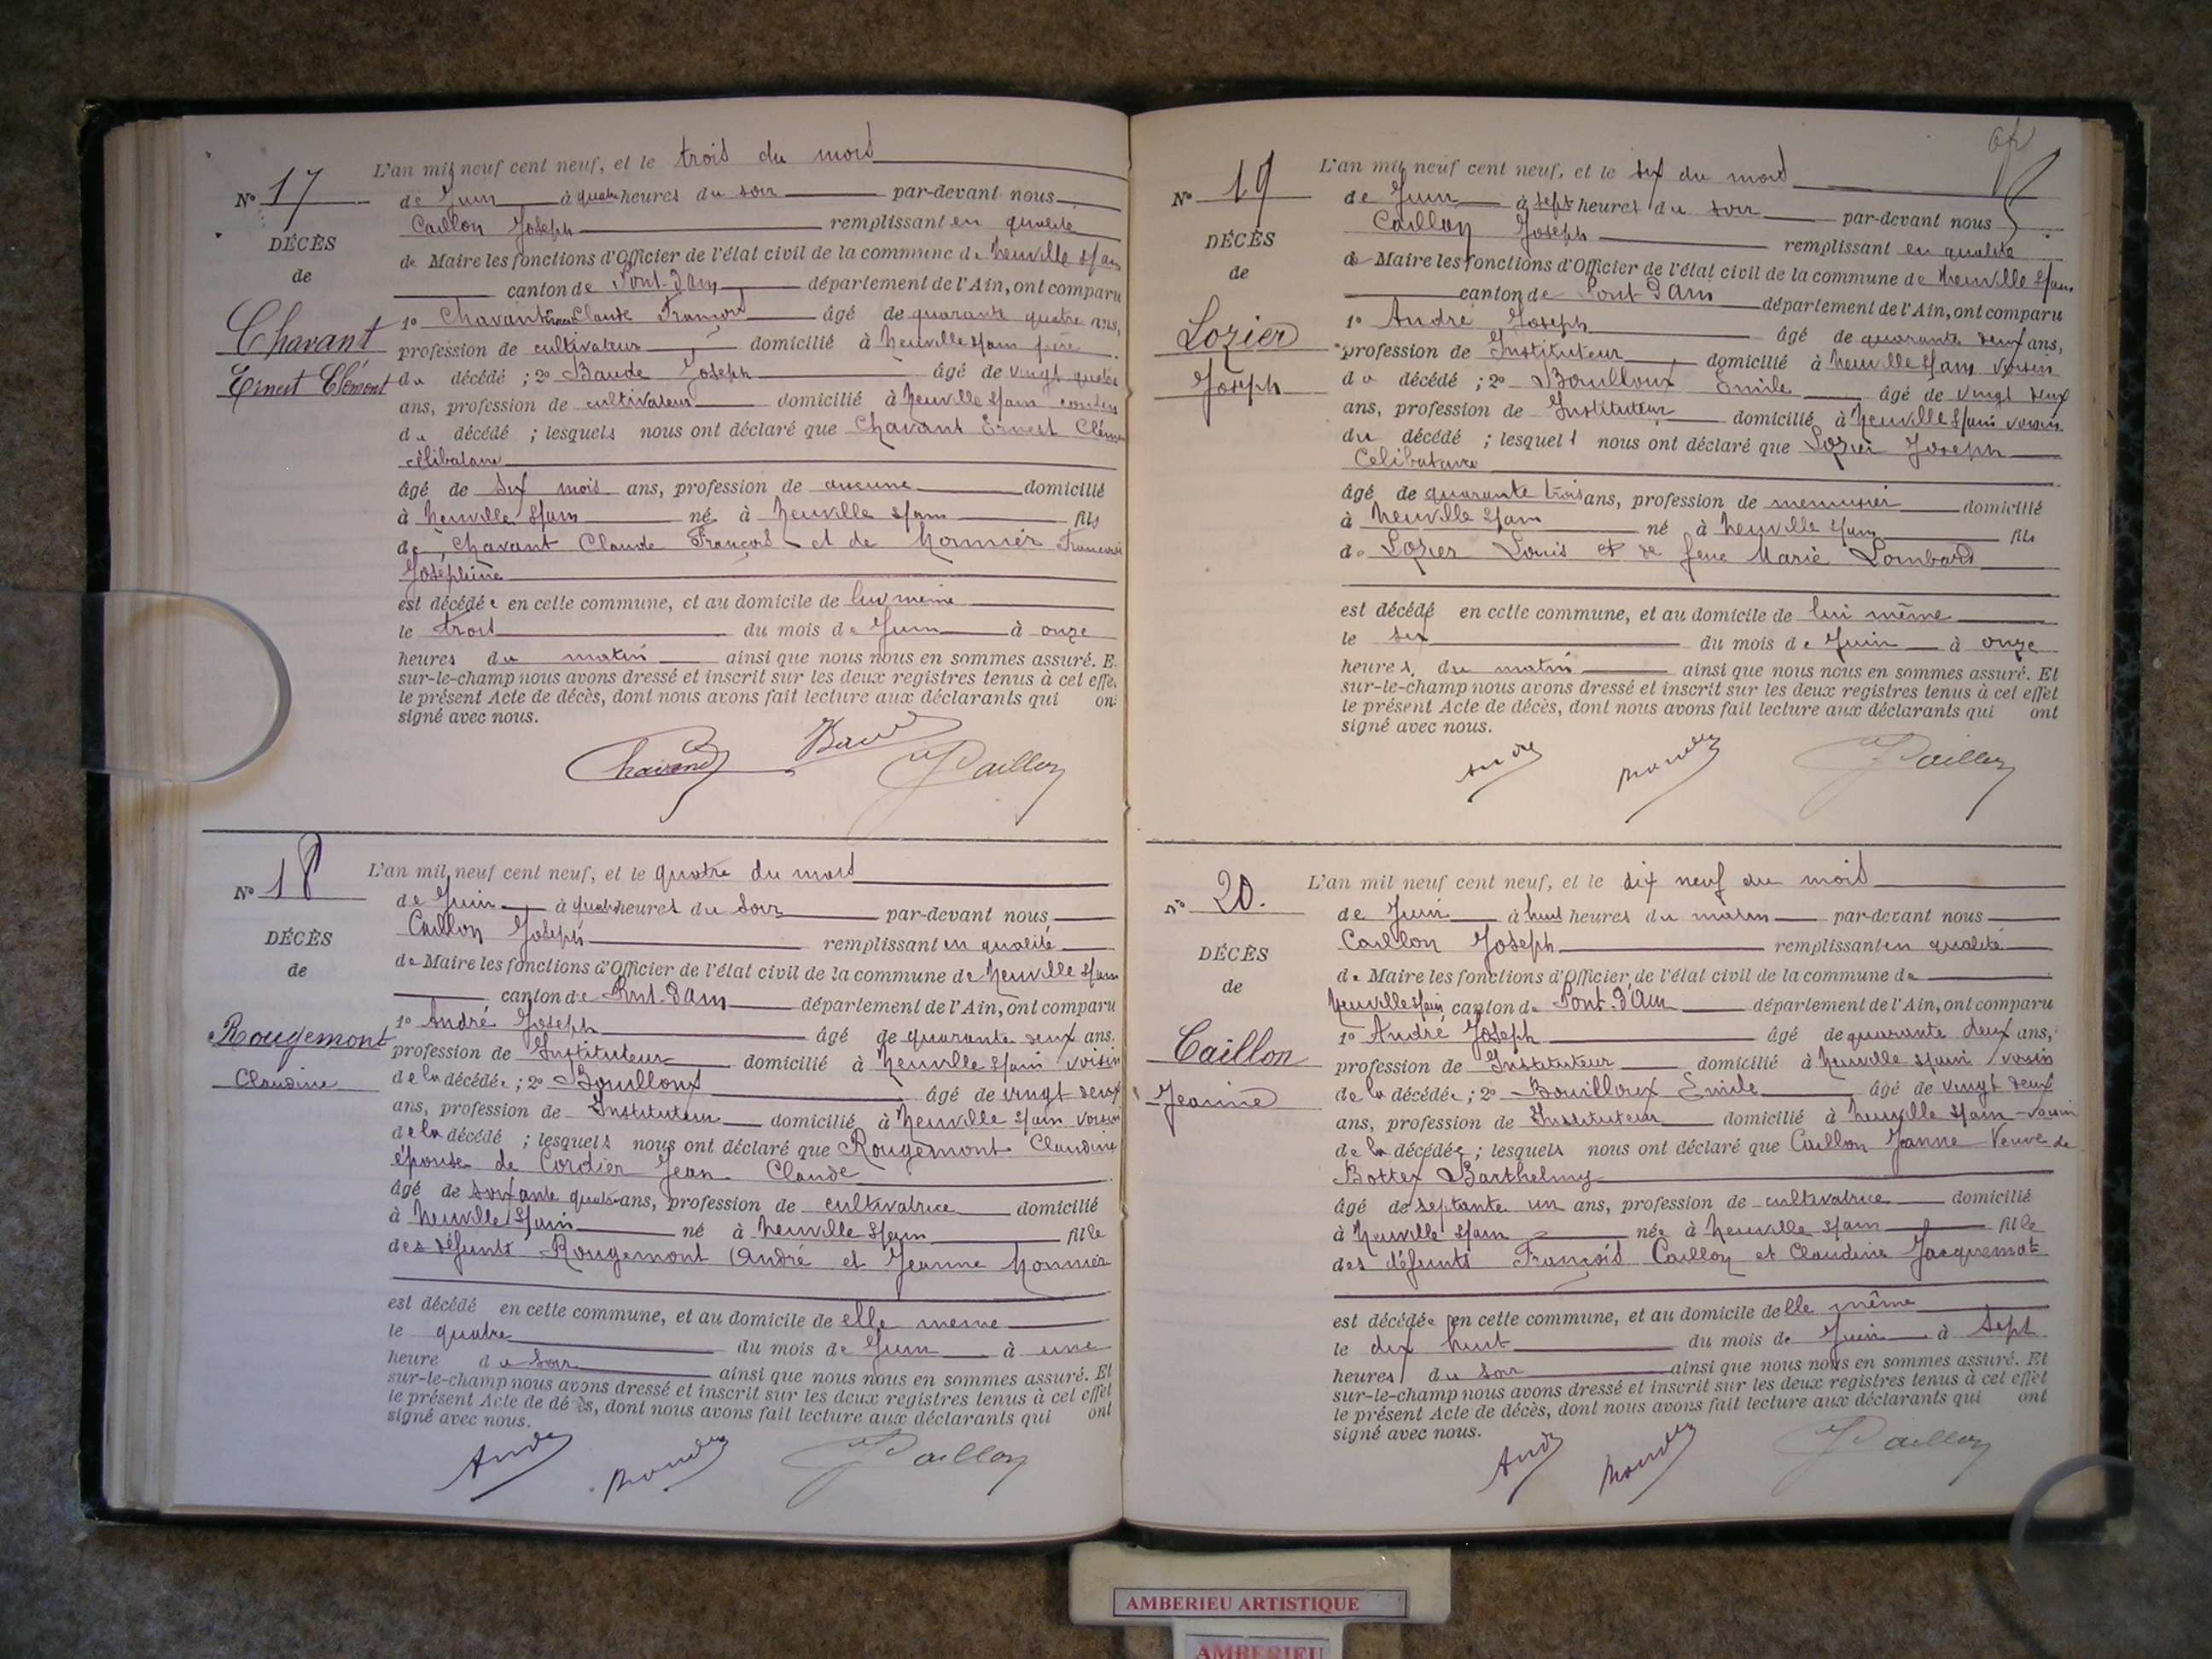 L'an mil neuf cent neuf, et le trois du mois
N° 17
de Juin à quatre heures du soir par-devant nous
Caillon Joseph remplissant en qualité
DÉCÈS
de Maire les fonctions d'Officier de l'état civil de la commune de Neuville s/ain
de
canton de Pont-d'Ain département de l'Ain, ont comparu
1° Chavant Claude François âgé de quarante quatre ans,
Chavant
profession de cultivateur domicilié à Neuville s/ain père
Ernest Clément
du décédé ; 2° Baude Joseph âgé de vingt quatre
ans, profession de cultivateur domicilié à Neuville s/ain cousin
du décédé ; lesquels nous ont déclaré que Chavant Ernest Clément
célibataire
âgé de six mois ans, profession de aucune domicilié
à Neuville s/ain né à Neuville s/ain fils
de Chavant Claude François et de Monnier Françoise
Joséphine
est décédé en cette commune, et au domicile de lui même
le trois du mois de Juin à onze
heures du matin ainsi que nous nous en sommes assuré. E
sur-le-champ nous avons dressé et inscrit sur les deux registres tenus à cet effe
le présent Acte de décès, dont nous avons fait lecture aux déclarants qui on
signé avec nous.
Chavand
JCaillon
L'an mil neuf cent neuf, et le quatre du mois
N° 18
de Juin à quatre heures du soir par-devant nous
Caillon Joseph remplissant en qualité
DÉCÈS
de Maire les fonctions d'Officier de l'état civil de la commune de Neuville s/ain
de
canton de Pont-d'Ain département de l'Ain, ont comparu
1° André Joseph âgé de quarante deux ans.
Rougemont
profession de Instituteur domicilié à Neuville s/ain voisin
Claudine
de la décédée ; 2° Bouilloux âgé de vingt deux
ans, profession de Instituteur domicilié à Neuville s/ain voisin
de la décédé ; lesquels nous ont déclaré que Rougemont Claudine
épouse de Cordier Jean Claude
âgé de soixante quatre ans, profession de cultivatrice domicilié
à Neuville s/ain né à Neuville s/ain fille
des défunts Rougemont André et Jeanne Monnier
est décédé en cette commune, et au domicile de elle meme
le quatre du mois de Juin à une
heure du soir ainsi que nous nous en sommes assuré. Et
sur-le-champ nous avons dressé et inscrit sur les deux registres tenus à cet effet
le présent Acte de décès, dont nous avons fait lecture aux déclarants qui ont
signé avec nous.
André
JCaillon
L'an mil neuf cent neuf, et le six du mois
N° 19
de Juin à sept heures du soir par-devant nous
Caillon Joseph remplissant en qualité
DÉCÈS
de Maire les fonctions d'Officier de l'état civil de la commune de Neuville s/ain
de
canton de Pont d'Ain département de l'Ain, ont comparu
1° André Joseph âgé de quarante deux ans,
Lozier
profession de Instituteur domicilié à Neuville s/ain voisin
Joseph
du décédé ; 2° Bouilloux Emile âgé de vingt deux
ans, profession de Instituteur domicilié à Neuville s/ain voisin
du décédé ; lesquels nous ont déclaré que Lozier Joseph
Célibataire
âgé de quarante trois ans, profession de menuisier domicilié
à Neuville s/ain né à Neuville s/ain fils
de Lozier Louis et de feue Marie Lombard
est décédé en cette commune, et au domicile de lui même
le six du mois de Juin à onze
heures du matin ainsi que nous nous en sommes assuré. Et
sur-le-champ nous avons dressé et inscrit sur les deux registres tenus à cet effet
le présent Acte de décès, dont nous avons fait lecture aux déclarants qui ont
signé avec nous.
André
JCaillon
L'an mil neuf cent neuf, et le dix neuf du mois
N° 20.
de Juin à huit heures du matin par-devant nous
Caillon Joseph remplissant en qualité
DÉCÈS
de Maire les fonctions d'Officier de l'état civil de la commune de
de
Neuville s/ain canton de Pont-d'Ain département de l'Ain, ont comparu
1° André Joseph âgé de quarante deux ans,
Caillon
profession de Instituteur domicilié à Neuville s/ain voisin
Jeanne
de la décédée ; 2° Bouilloux Emile âgé de vingt deux
ans, profession de Instituteur domicilié à Neuville s/ain voisin
de la décédée ; lesquels nous ont déclaré que Caillon Jeanne Veuve de
Bottex Barthelmy
âgé de septante un ans, profession de cultivatrice domicilié
à Neuville s/ain née à Neuville s/ain fille
des défunts François Caillon et Claudine Jacquemot
est décédée en cette commune, et au domicile delle même
le dix huit du mois de Juin à sept
heures du soir ainsi que nous nous en sommes assuré. Et
sur-le-champ nous avons dressé et inscrit sur les deux registres tenus à cet effet
le présent Acte de décès, dont nous avons fait lecture aux déclarants qui ont
signé avec nous.
André
JCaillon
AMBERIEU ARTISTIQUE
AMBERIEU